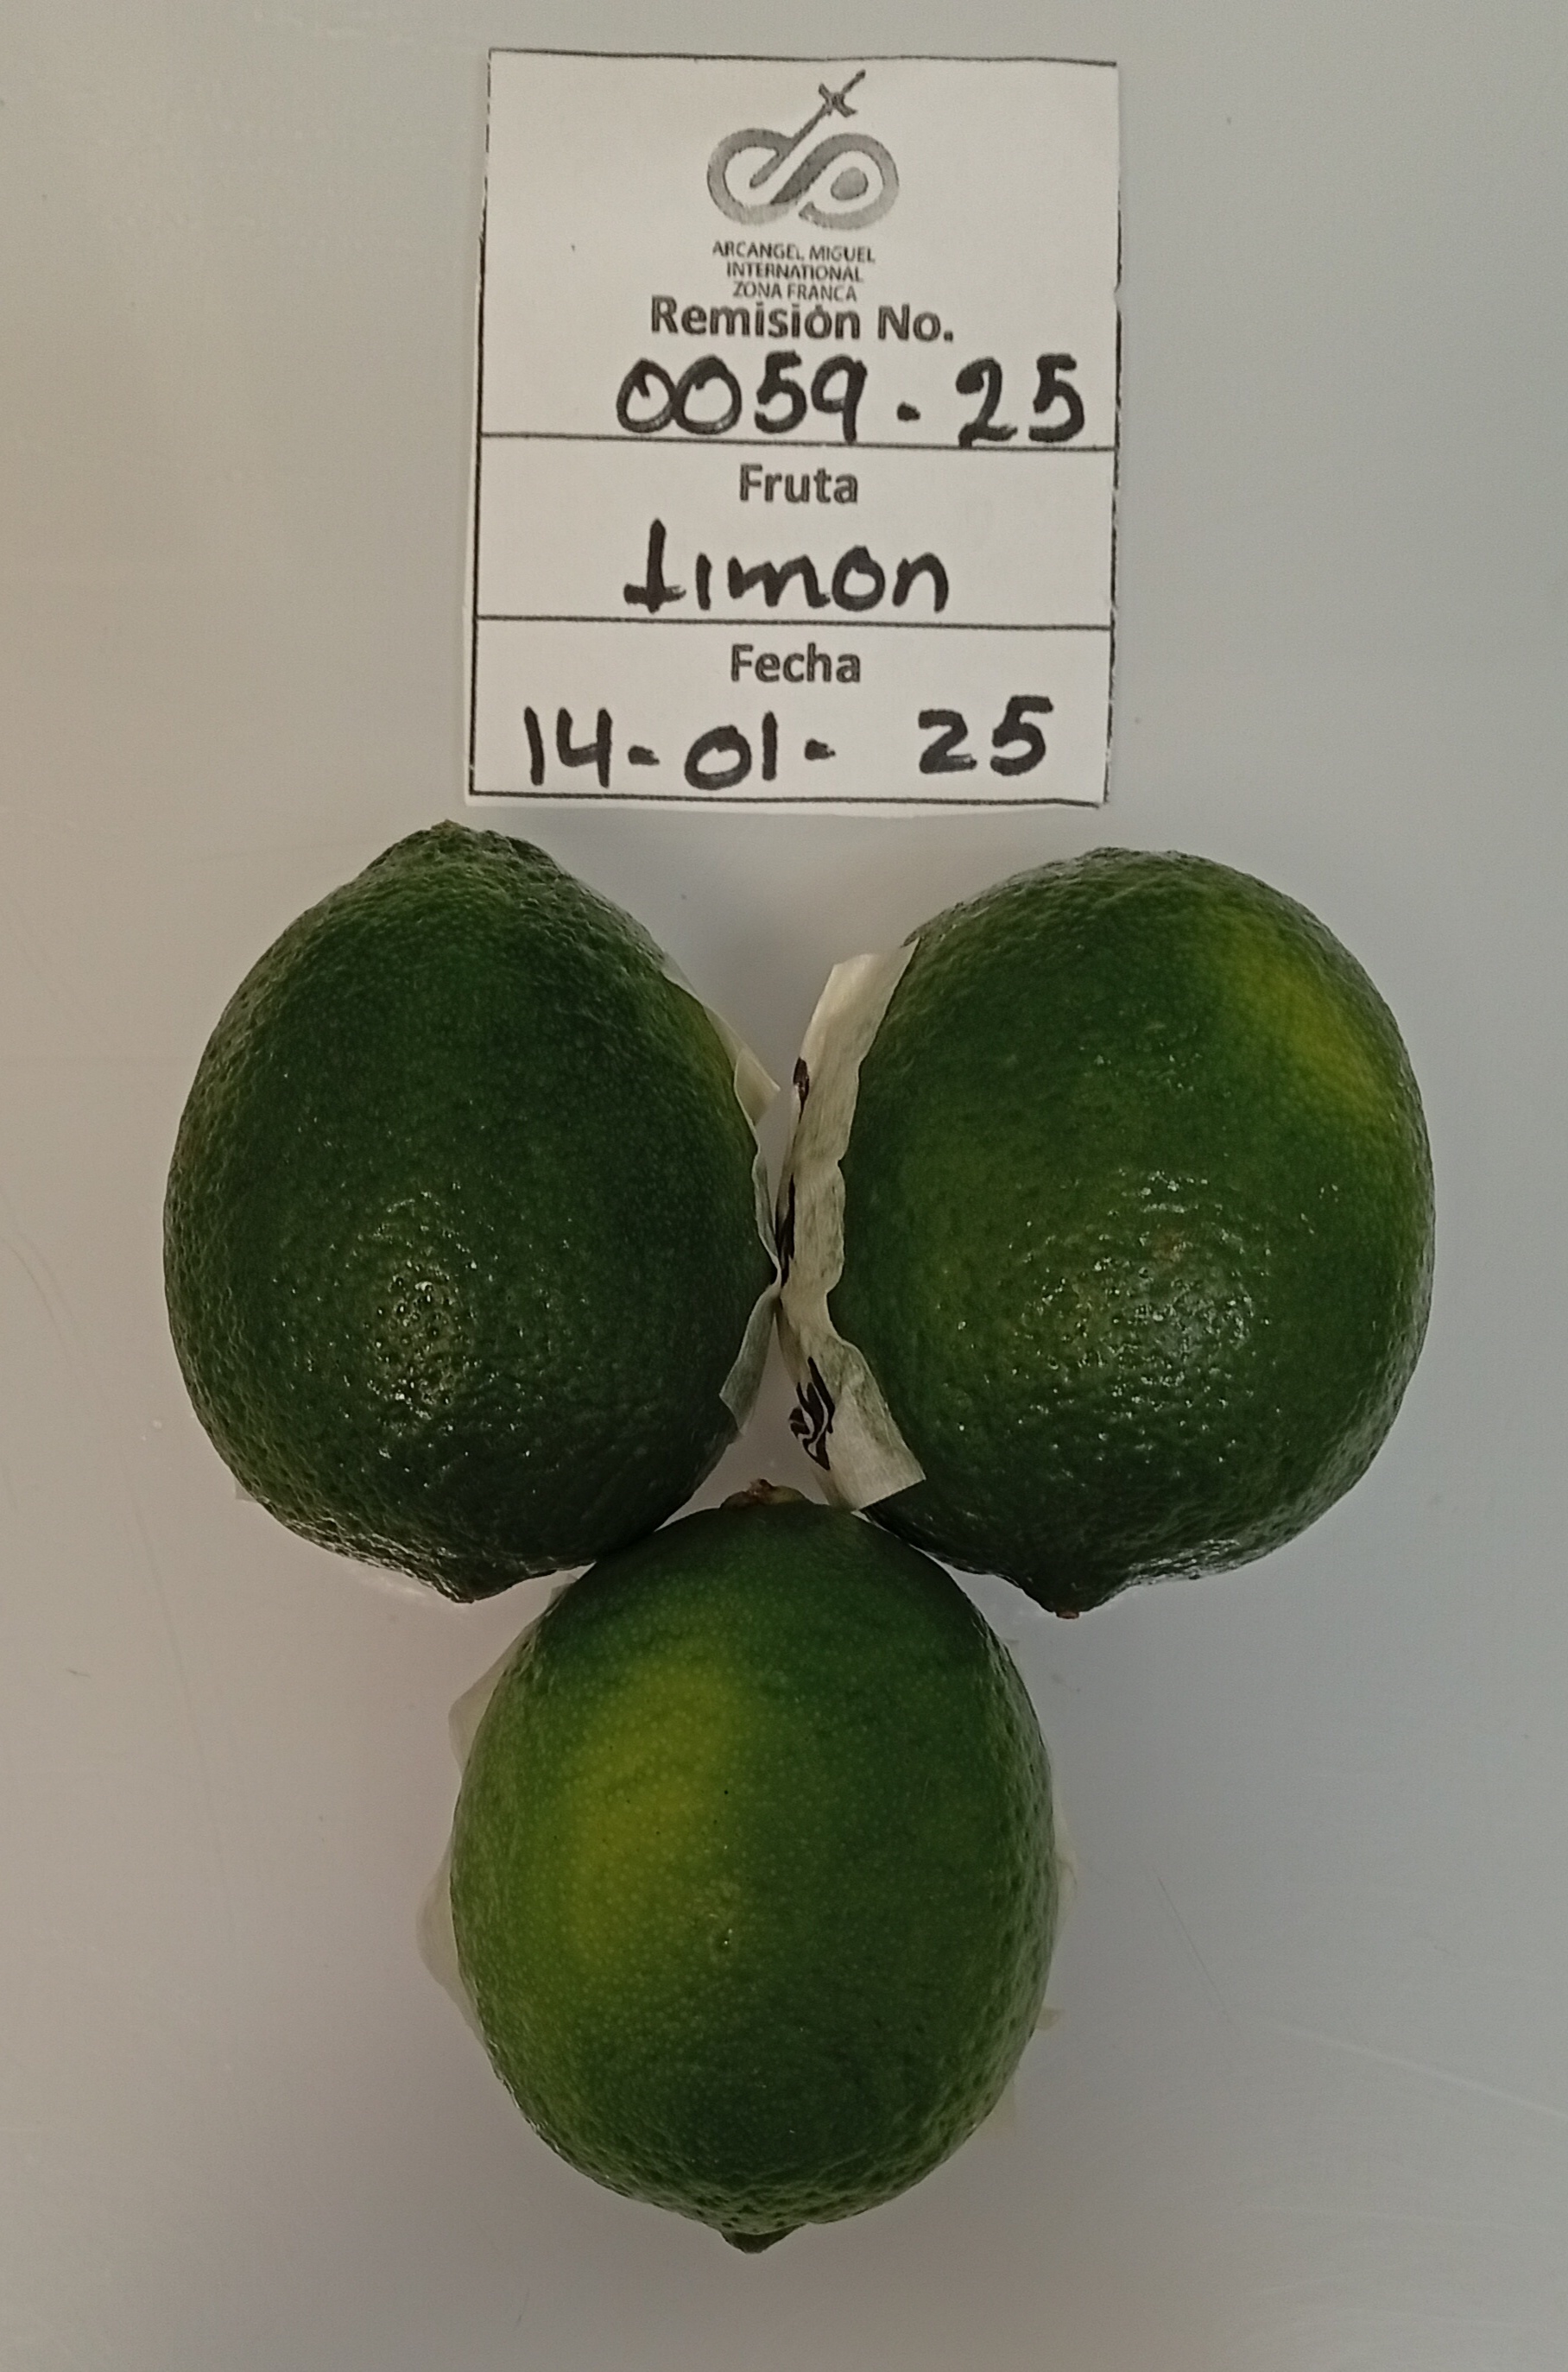 ARCANGEL MIGUEL
INTERNATIONAL
ZONA FRANCA
Remisión No.
0059-25
Fruta
Limon
Fecha
14-01-25